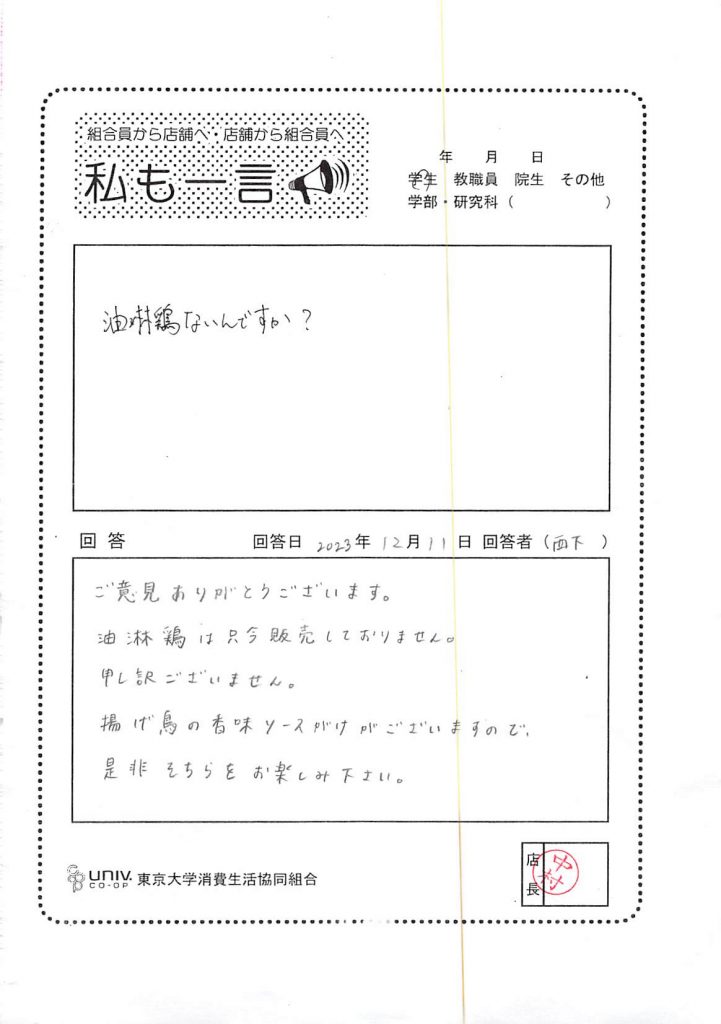 組合員から店舗へ・店舗から組合員へ
私も一言
年 月 日
学生 教職員 院生 その他
学部・研究科( )
油淋鶏ないんですか?
回答 回答日 2023年12月11日 回答者(西下)
ご意見ありがとうございます。
油淋鶏は只今販売しておりません。
申し訳ございません。
揚げ鳥の香味ソースがけがございますので、
是非そちらをお楽しみ下さい。
UNIV.
CO-OP
東京大学消費生活協同組合
店長
中村